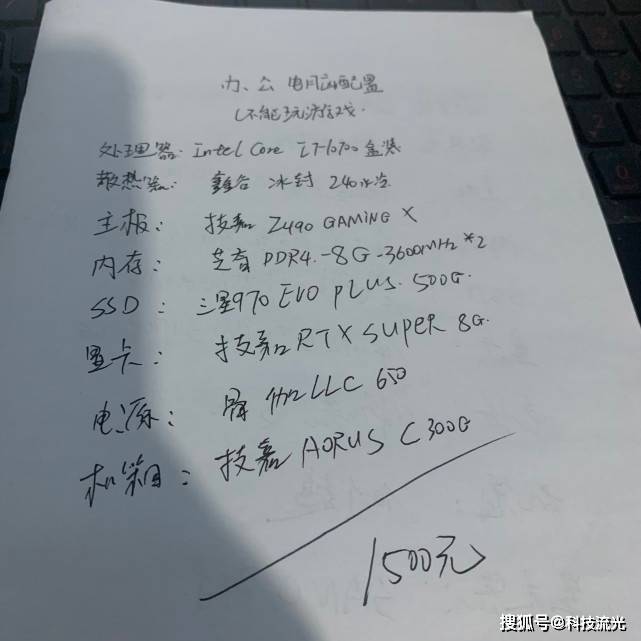 办公电脑配置
(不能玩游戏.
处理器: Intel Core i7-10700 盒装
散热器: 鑫谷 冰封 240水冷
主板: 技嘉 Z490 GAMING X
内存: 芝奇 DDR4-8G-3600MHz*2
SSD: 三星970 EVO PLUS. 500G.
显卡: 技嘉 RTX SUPER 8G.
电源: 伽 LLC 650
机箱: 技嘉 AORUS C300G
1500元
搜狐号@科技流光